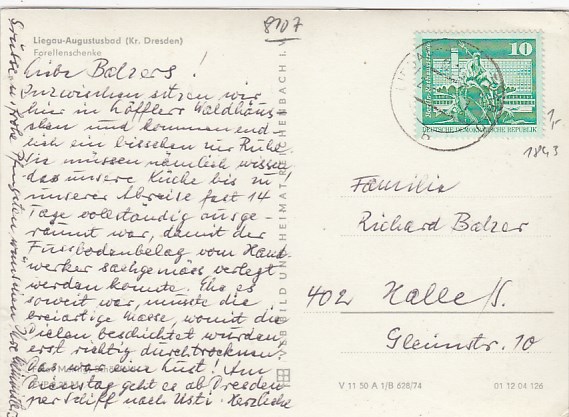 8107
Liegau-Augustusbad (Kr. Dresden)
Forellenschenke
Liebe Balzers!
Inzwischen sitzen wir
hier in Höfflers Waldhäus
chen und kommen end-
lich ein bisschen zur Ruhe
Sie müssen nämlich wissen,
das unsere Küche bis zu
unserer Abreise fast 14
Tage vollständig ausge-
räumt war, damit der
Fussbodenbelag vom Hand
werker sachgemäss verlegt
werden konnte. Ehe es
soweit war, musste die
breiartige Masse, womit die
Dielen beschichtet wurden,
erst richtig durchtrocknen.
Das war eine Lust! Am
Dienstag geht es ab Dresden
per Schiff nach Usti. Herzliche
frohe Pfingsten wünschen Ihre
VEB BILD UND HEIMAT REICHENBACH i. V.
10
Berlin
DEUTSCHE DEMOKRATISCHE REPUBLIK
1,-
1843
Familie
Richard Balzer
402 Halle/S.
Gleimstr. 10
V 11 50 A 1/B 628/74
01 12 04 126